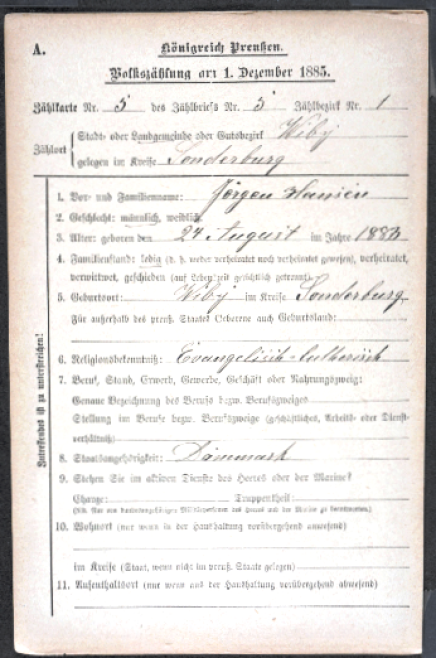 A.
Königreich Preußen.
Volkszählung am 1. Dezember 1885.
Zählkarte Nr. 5 des Zählbriefs Nr. 5 Zählbezirk Nr. 1
Stadt- oder Landgemeinde oder Gutsbezirk Wibÿ
Zählort
gelegen im Kreise Sonderburg
Zutreffendes ist zu unterstreichen!
1. Vor- und Familienname: Jörgen Hansen
2. Geschlecht: männlich, weiblich.
3. Alter: geboren den 24 August im Jahre 1883
4. Familienstand: ledig (d. h. weder verheiratet noch verheiratet gewesen), verheiratet,
verwittwet, geschieden (auf Lebenszeit gerichtlich getrennt).
5. Geburtsort: Wibÿ im Kreise Sonderburg
Für außerhalb des preuß. Staates Geborene auch Geburtsland:
6. Religionsbekenntniß: Evangelisch-lutherisch
7. Beruf, Stand, Erwerb, Gewerbe, Geschäft oder Nahrungszweig:
Genaue Bezeichnung des Berufs bezw. Berufszweiges
Stellung im Berufe bezw. Berufszweige (geschäftliches, Arbeits- oder Dienst-
verhältniß)
8. Staatsangehörigkeit: Dänmark
9. Stehen Sie im aktiven Dienste des Heeres oder der Marine?
Charge: Truppentheil:
des Heeres und der Marine zu beantworten.)
10. Wohnort (nur wenn in der Haushaltung vorübergehend anwesend)
im Kreise (Staat, wenn nicht im preuß. Staate gelegen)
11. Aufenthaltsort (nur wenn aus der Haushaltung vorübergehend abwesend)